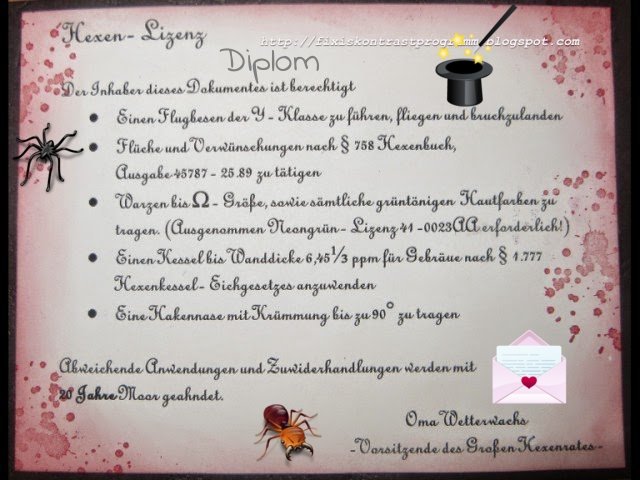 Hexen - Lizenz
http://fixiskontrastprogramm.blogspot.com
Diplom
Der Inhaber dieses Dokumentes ist berechtigt
• Einen Flugbesen der Y - Klasse zu führen, fliegen und bruchzulanden
• Flüche und Verwünschungen nach § 758 Hexenbuch,
Ausgabe 45787 - 25.89 zu tätigen
• Warzen bis Ω - Größe, sowie sämtliche grüntönigen Hautfarben zu
tragen. (Ausgenommen Neongrün - Lizenz 41 -0023AA erforderlich!)
• Einen Kessel bis Wanddicke 6,45⅓ ppm für Gebräue nach § 1.777
Hexenkessel - Eichgesetzes anzuwenden
• Eine Hakennase mit Krümmung bis zu 90° zu tragen
Abweichende Anwendungen und Zuwiderhandlungen werden mit
20 Jahre Moor geahndet.
Oma Wetterwachs
- Vorsitzende des Großen Hexenrates -